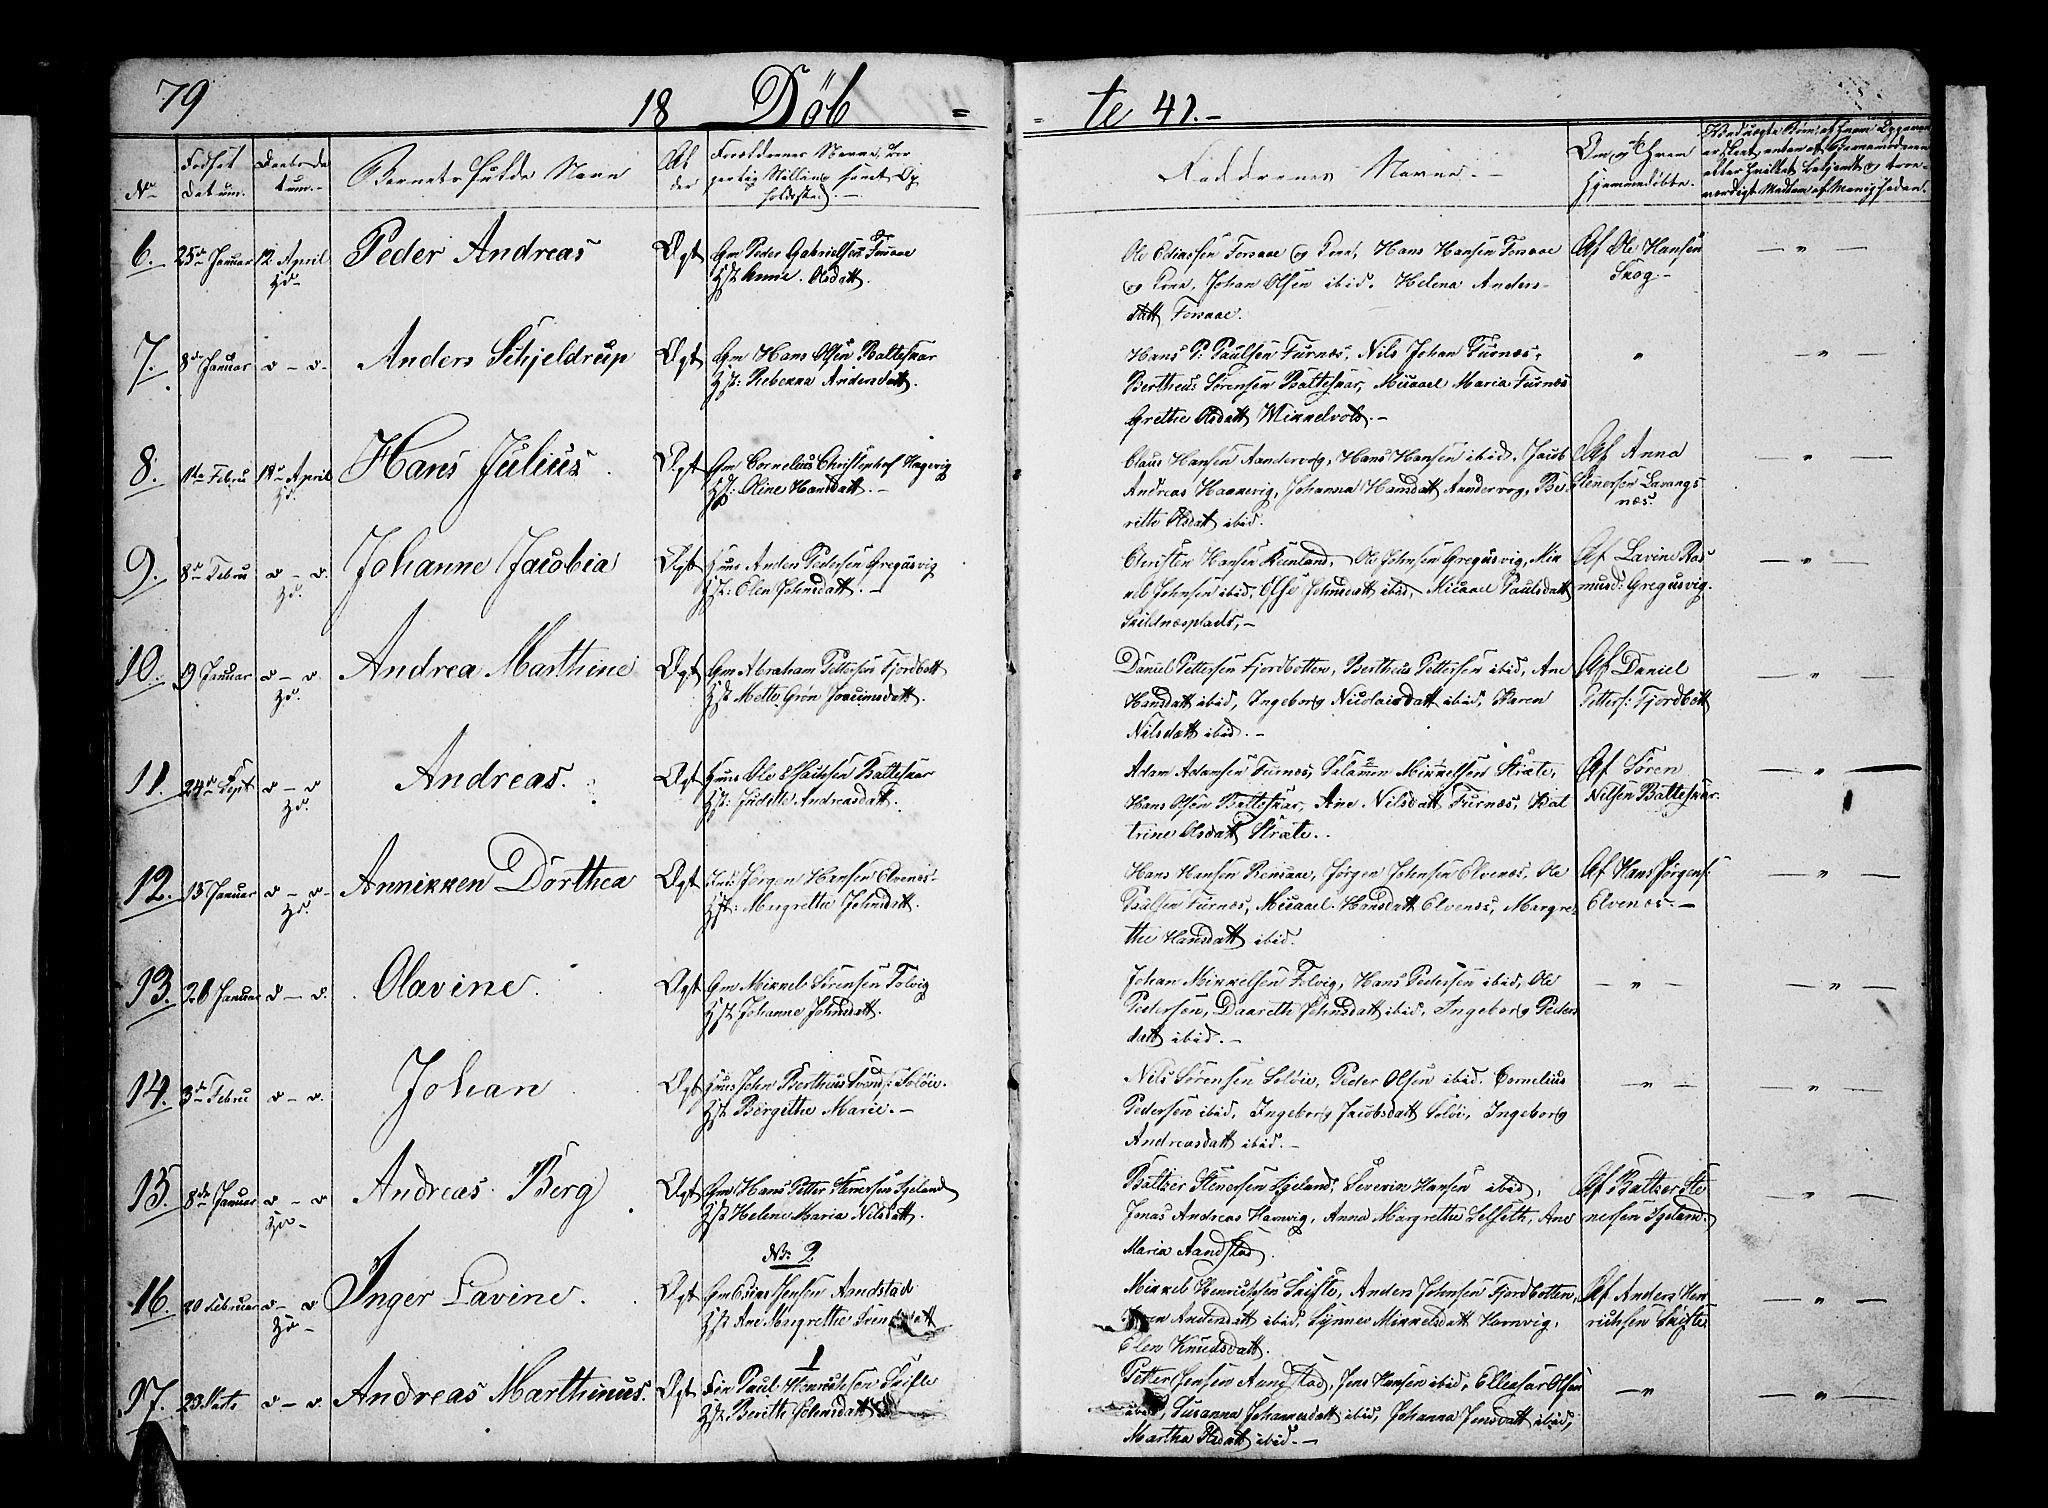 79
18 Döb = - te 41.-
No
Fødsel
datum.
Daabsda
tum.
Barnets fulde Navn
Forældrenes Navne
Faddernes Navne.-
Om og af Hvem
hjemmedøbte.
6. 25de Januar 12 April Peder Andreas Ægt Gm Peder Gabrielsen Forsaae
Hd- Hst Anne Olsdatt.
Ole Ediassen Forsaae og Kone, Hans Hansen Forsaae
og Kone, Johan Olsen ibid. Helena Anders-
datt Forsaae.
Af Ole Hansen
Skog.-
7. 8de Januar d - d. Anders Schjeldrup Ægt Gm Hans Olsen Balteskar
Hst: Rebekka Andersdatt.
Hans P: Paulsen Furnæs, Nils Johan Furnæs,
Bertheus Sørensen Balteskar, Maria Furnæs
Grethe Olsdatt Mikkelvold.-
8. 11te Febru 18de April Hans Julius Ægt Gm Cornelius Christophof Hagevig
Hd. Hst: Oline Hansdatt.-
Claus Hansen Aandervog, Hans Hansen ibid, Jacob
Andreas Haakevig, Johanna Hansdatt Aandervog, Be-
rithe Olsdatt ibid.
Af Anna
Stenersen Lavangs
næs.
9. 8de Febru d - d. Johanne Jacobia Ægt Huus Anders Pedersen Gregusvig
Hd. Hst: Elen Johnsdatt.-
Christen Hansen, Ole Johnsen Gregusvig, Mik
kel Johnsen ibid, Johnsdatt ibid, Paulsdatt
Skildnæsplads,-
Af Lavine Ras
musd: Gregusvig.
10. 19 Januar d - d Andrea Marthine Ægt Gm Abraham Pettersen Fjordbott
Hd. Hst Mette Grøn Joacimsdatt.
Daniel Pettersen Fjordbotten, Bertheus Pettersen ibid, Ane
Hansdatt ibid, Ingeborg Nicolaisdatt ibid, Karen
Nilsdatt ibid.-
Af Daniel
Petters: Fjordbott
11. 24de Sept d - d Andreas. Ægt Huus Ole Balteskar
Hd. Hst: Judithe Andreasdatt.
Adam Adamsen Furnæs, Salamon Mikkelsen Stræte,
Hans Olsen Balteskar, Ane Nilsdatt Furnæs, Kat
trine Olsdatt Stræte.
Af Søren
Nilsen Balteskar.
12. 13 Januar d - d. Annikken Dorthea Ægt Jørgen Hansen Elvenes-
Hd. Hst: Margrethe Johnsdatt.
Hans Hansen, Jørgen Johnsen Elvenes, Ole
Paulsen Furnæs, Hansdatt Elvenes, Margre-
the Hansdatt ibid.
Af Hans Jørgens:
Elvenæs.-
13. 26 Januar d - d. Olavine Ægt Gm Mikkel Sørensen Tolvig
Hst Johanne Johnsdatt.
Johan Mikkelsen Tolvig, Hans Pedersen ibid, Ole
Pedersen, Daareth Johnsdatt ibid, Ingeborg Peders
datt ibid.-
14. 3de Febru d - d. Johan Ægt Huus John Bertheus Soløi.
Hst Birgithe Marie.-
Nils Sørensen Soløi, Peder Olsen ibid. Cornelius
Pedersen ibid, Ingeborg Jacobsdatt Soløi, Ingeborg
Andreasdatt ibid.-
15. 8de Januar d - d Andreas Berg Ægt Gm Hans Petter Stenersen Igeland
Hd- Hst Helene Maria Nilsdatt.
Baltzer Stenersen Igeland, Severin Hansen ibid,
Jonas Andreas Hamvig, Anna Margrethe Selseth, Ane
Maria Aandstad.
Af Baltzer Ste
nersen Igeland.
No. 2
16. 20 Februar d - d Inger Lavine. Ægt Gm Jensen Aandstad
Hd- Hst Ane Margrethe
Mikkel Henrichsen Skifte, Anders Johnsen Fjordbotten,
Andersdatt ibid, Synnev Mikkelsdatt Hamvig,
Elen Knudsdatt.
Af Anders Hen
richsen Skifte
1
17. 23 Marts d - d. Andreas Marthinus. Ægt Paul Henrichsen Skifte
Hst Berithe Johnsdatt
Petter Jensen Aandstad, Jens Hansen ibid, Olsen
ibid, Susanna Johannesdatt ibid, Johanna Jensdatt ibid,
Martha Olsdatt ibid.-